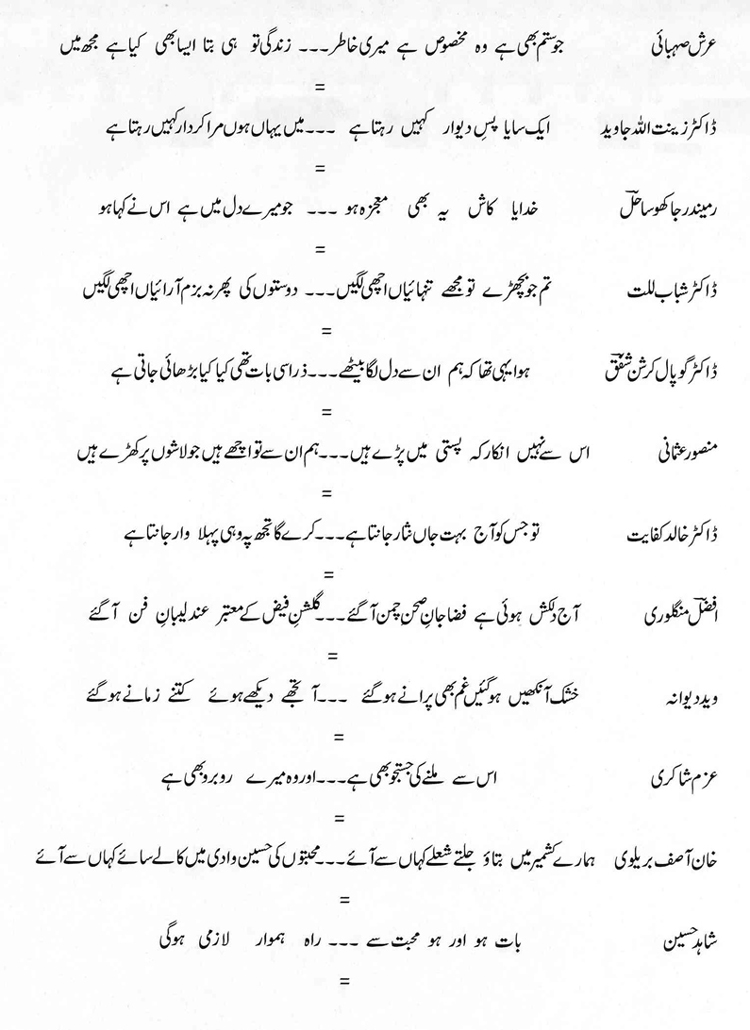 عرش صہبائی جو ستم بھی ہے وہ مخصوص ہے میری خاطر۔۔۔ زندگی تو ہی بتا ایسا بھی کیا ہے مجھ میں
=
ڈاکٹر زینت اللہ جاوید ایک سایا پسِ دیوار کہیں رہتا ہے ۔۔۔میں یہاں ہوں مرا کردار کہیں رہتا ہے
=
رمیندر جاکھو ساحلؔ خدایا کاش یہ بھی معجزہ ہو ۔۔۔ جو میرے دل میں ہے اس نے کہا ہو
=
ڈاکٹر شباب للت تم جو بچھڑے تو مجھے تنہائیاں اچھی لگیں۔۔۔ دوستوں کی پھر نہ بزم آرائیاں اچھی لگیں
=
ڈاکٹر گوپال کرشن شفقؔ ہوا یہی تھا کہ ہم ان سے دل لگا بیٹھے۔۔۔ذرا سی بات تھی کیا کیا بڑھائی جاتی ہے
=
منصور عثمانی اس سے نہیں انکار کہ پستی میں پڑے ہیں۔۔۔ہم ان سے تو اچھے ہیں جو لاشوں پر کھڑے ہیں
=
ڈاکٹر خالد کفایت تو جس کو آج بہت جاں نثار جانتا ہے۔۔۔کرے گا تجھ پہ وہی پہلا وار جانتا ہے
=
افضلؔ منگلوری آج دلکش ہوئی ہے فضا جانِ صحنِ چمن آ گئے۔۔۔گلشنِ فیض کے معتبر عندلیبانِ فن آ گئے
=
وید دیوانہ خشک آنکھیں ہو گئیں غم بھی پرانے ہو گئے ۔۔۔آ تجھے دیکھے ہوئے کتنے زمانے ہو گئے
=
عزم شاکری اس سے ملنے کی جستجو بھی ہے۔۔۔اور وہ میرے روبرو بھی ہے
=
خان آصف بریلوی ہمارے کشمیر میں بتاؤ جلتے شعلے کہاں سے آئے۔۔۔محبتوں کی حسین وادی میں کالے سائے کہاں سے آئے
=
شاہد حسین بات ہو اور ہو محبت سے ۔۔۔ راہ ہموار لازمی ہوگی
=